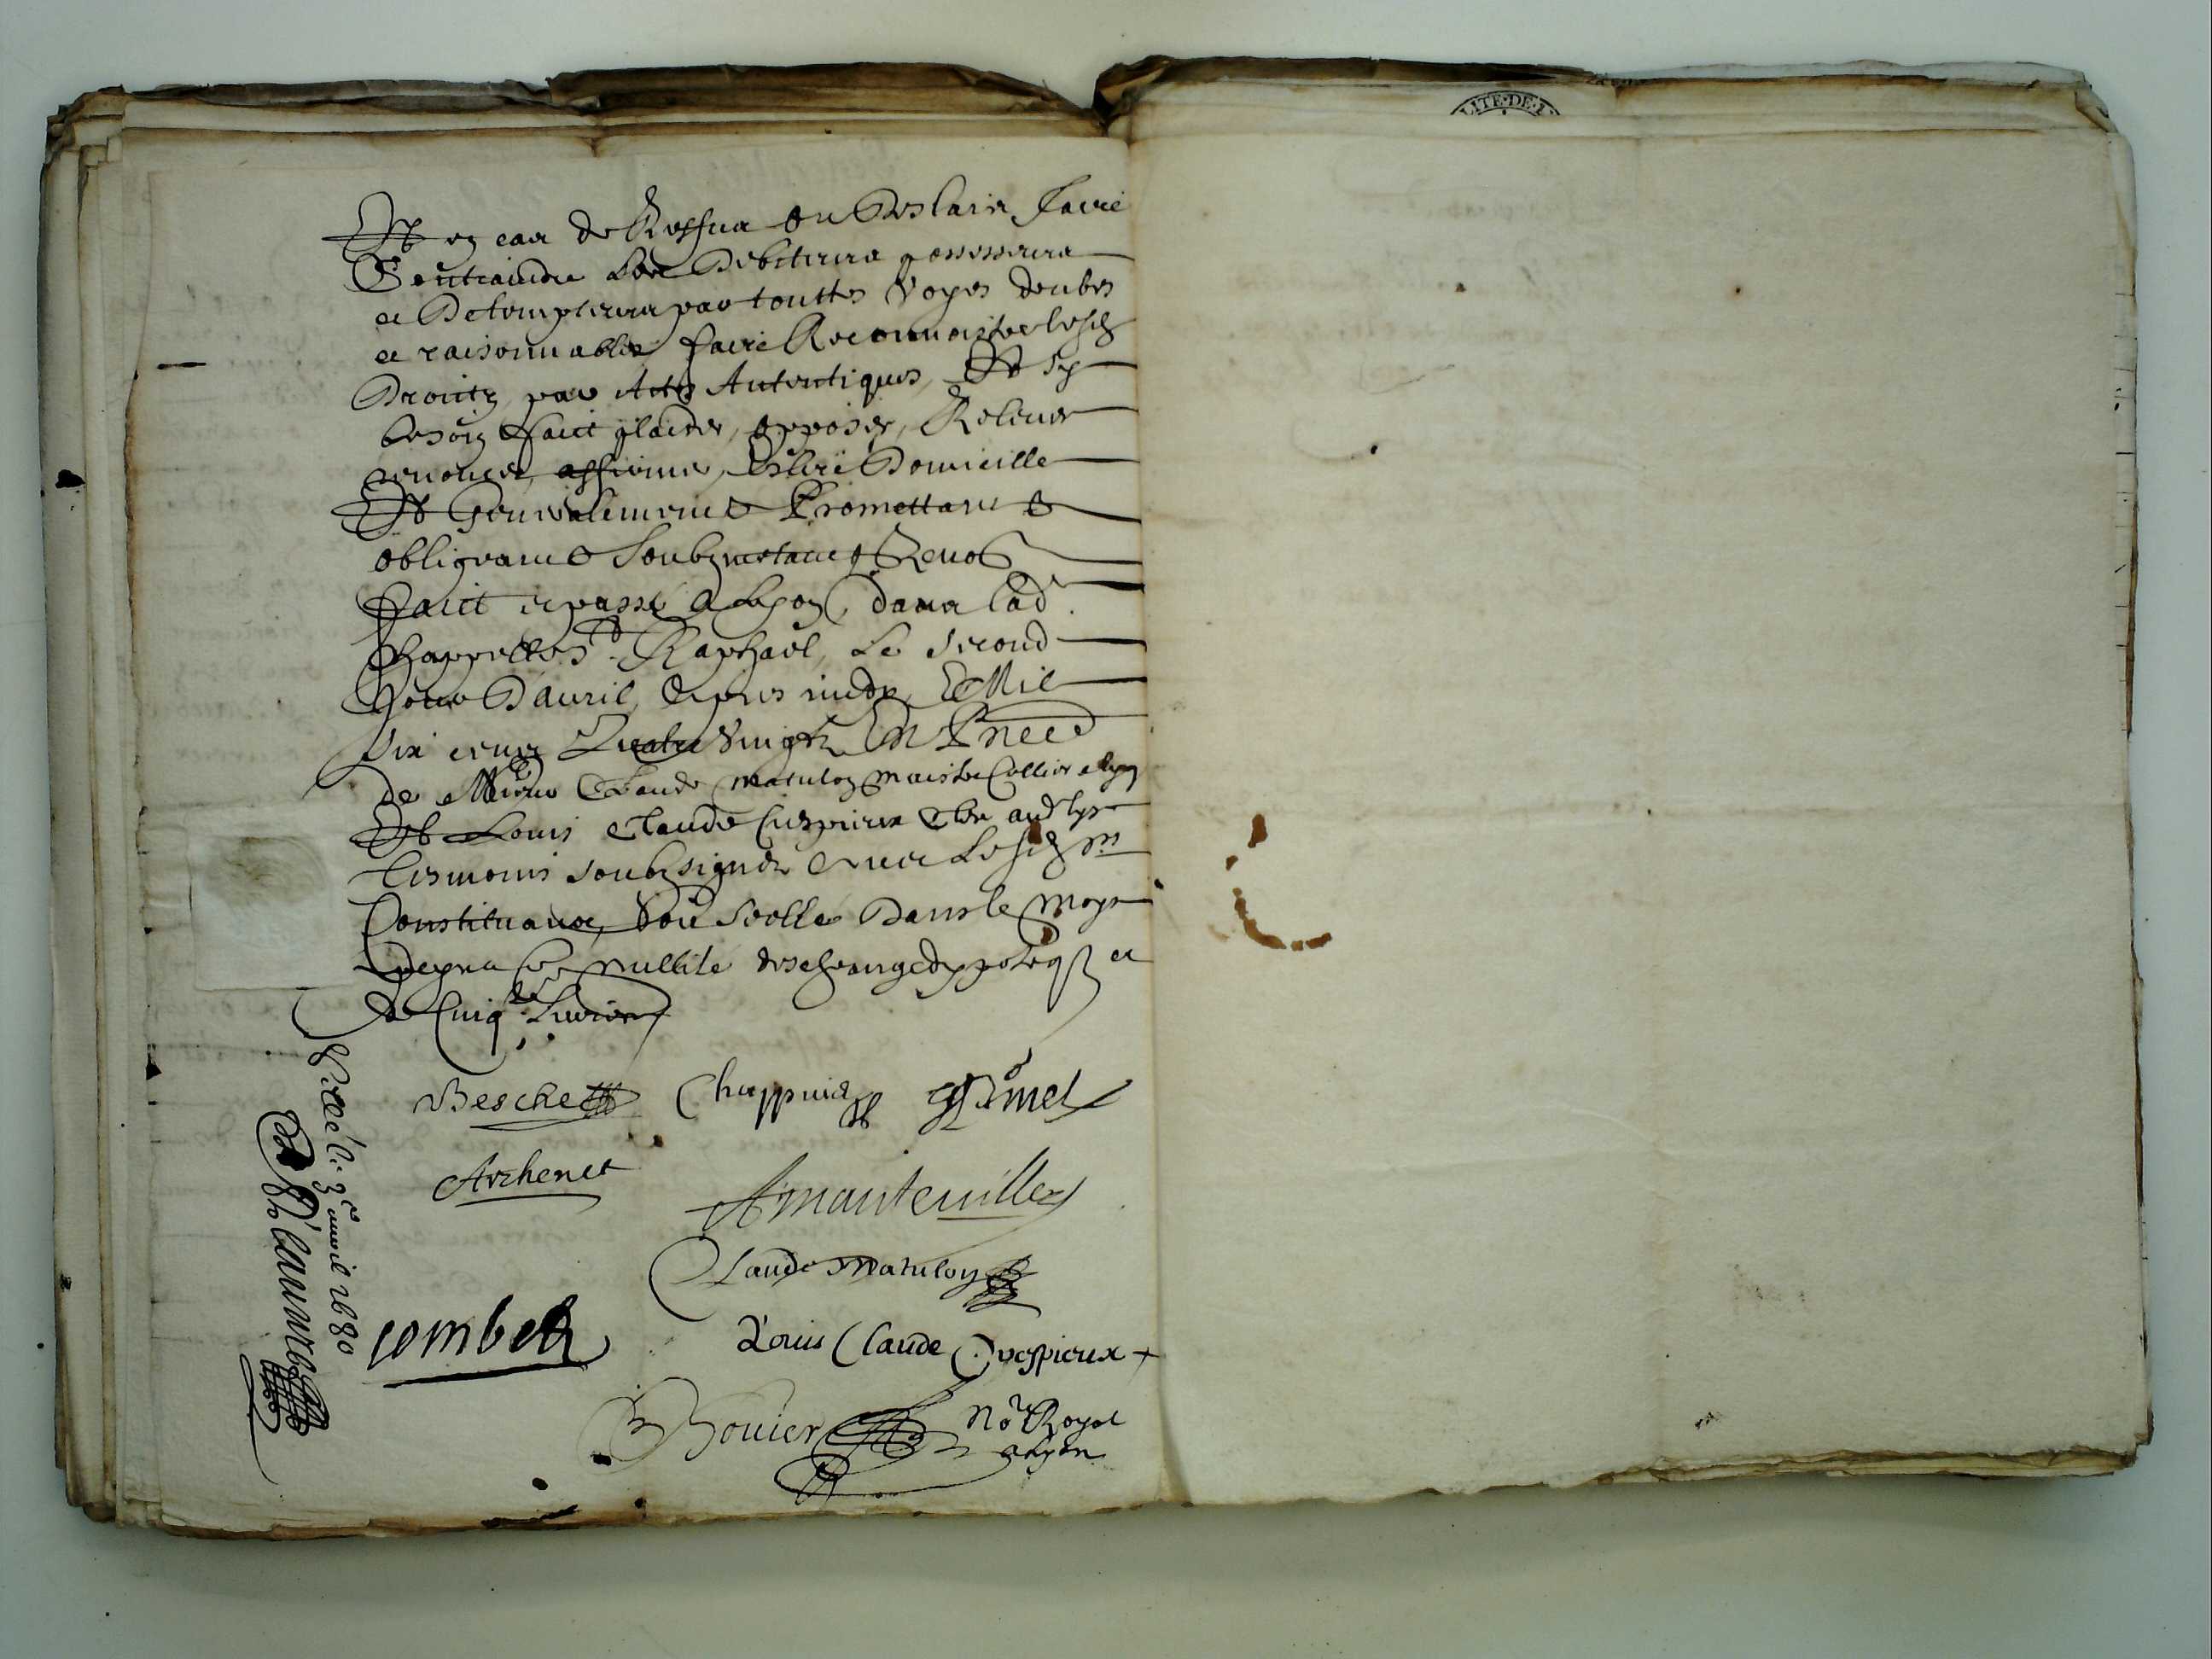 LITE·DE·L
Et en cas de Reffus ou deslais, faire
Contraindre les Debiteurs possesseurs
et Detempteurs par touttes Voyes deubes
et raisonnables, faire Reconnoistre lesd
Droits par Actes Autentiques, Et sy
besoin fait plaider, opposer, Relever
renoncer, affirmer, Eslire Domicille
Et Generalement Promettant
obligeant Soubzmettant Renon
Faict et passé a Lyon, dans lad
Chappelle St Raphael, Le second
Jour D'avril Apres midy, Mil
Six cens Quatre Vingtz En Pnce
de Claude Matulon Maistre Collier a Lyon
Et Louis Claude Crespieux Clerc aud Lyon
tesmoins soubzsignés avec lesd srs
Constituans, Soit scellé Dans le Moys
a peyne de nullité deschange dypoteq et
de Cinq Livres
Beschet Chappuis Gimel
Archenet
Amanteville
Claude Matulon
combet
Louis Claude Crespieux
Bouier Nore Royal
a Lyon
Scellé le 3e avril 1680